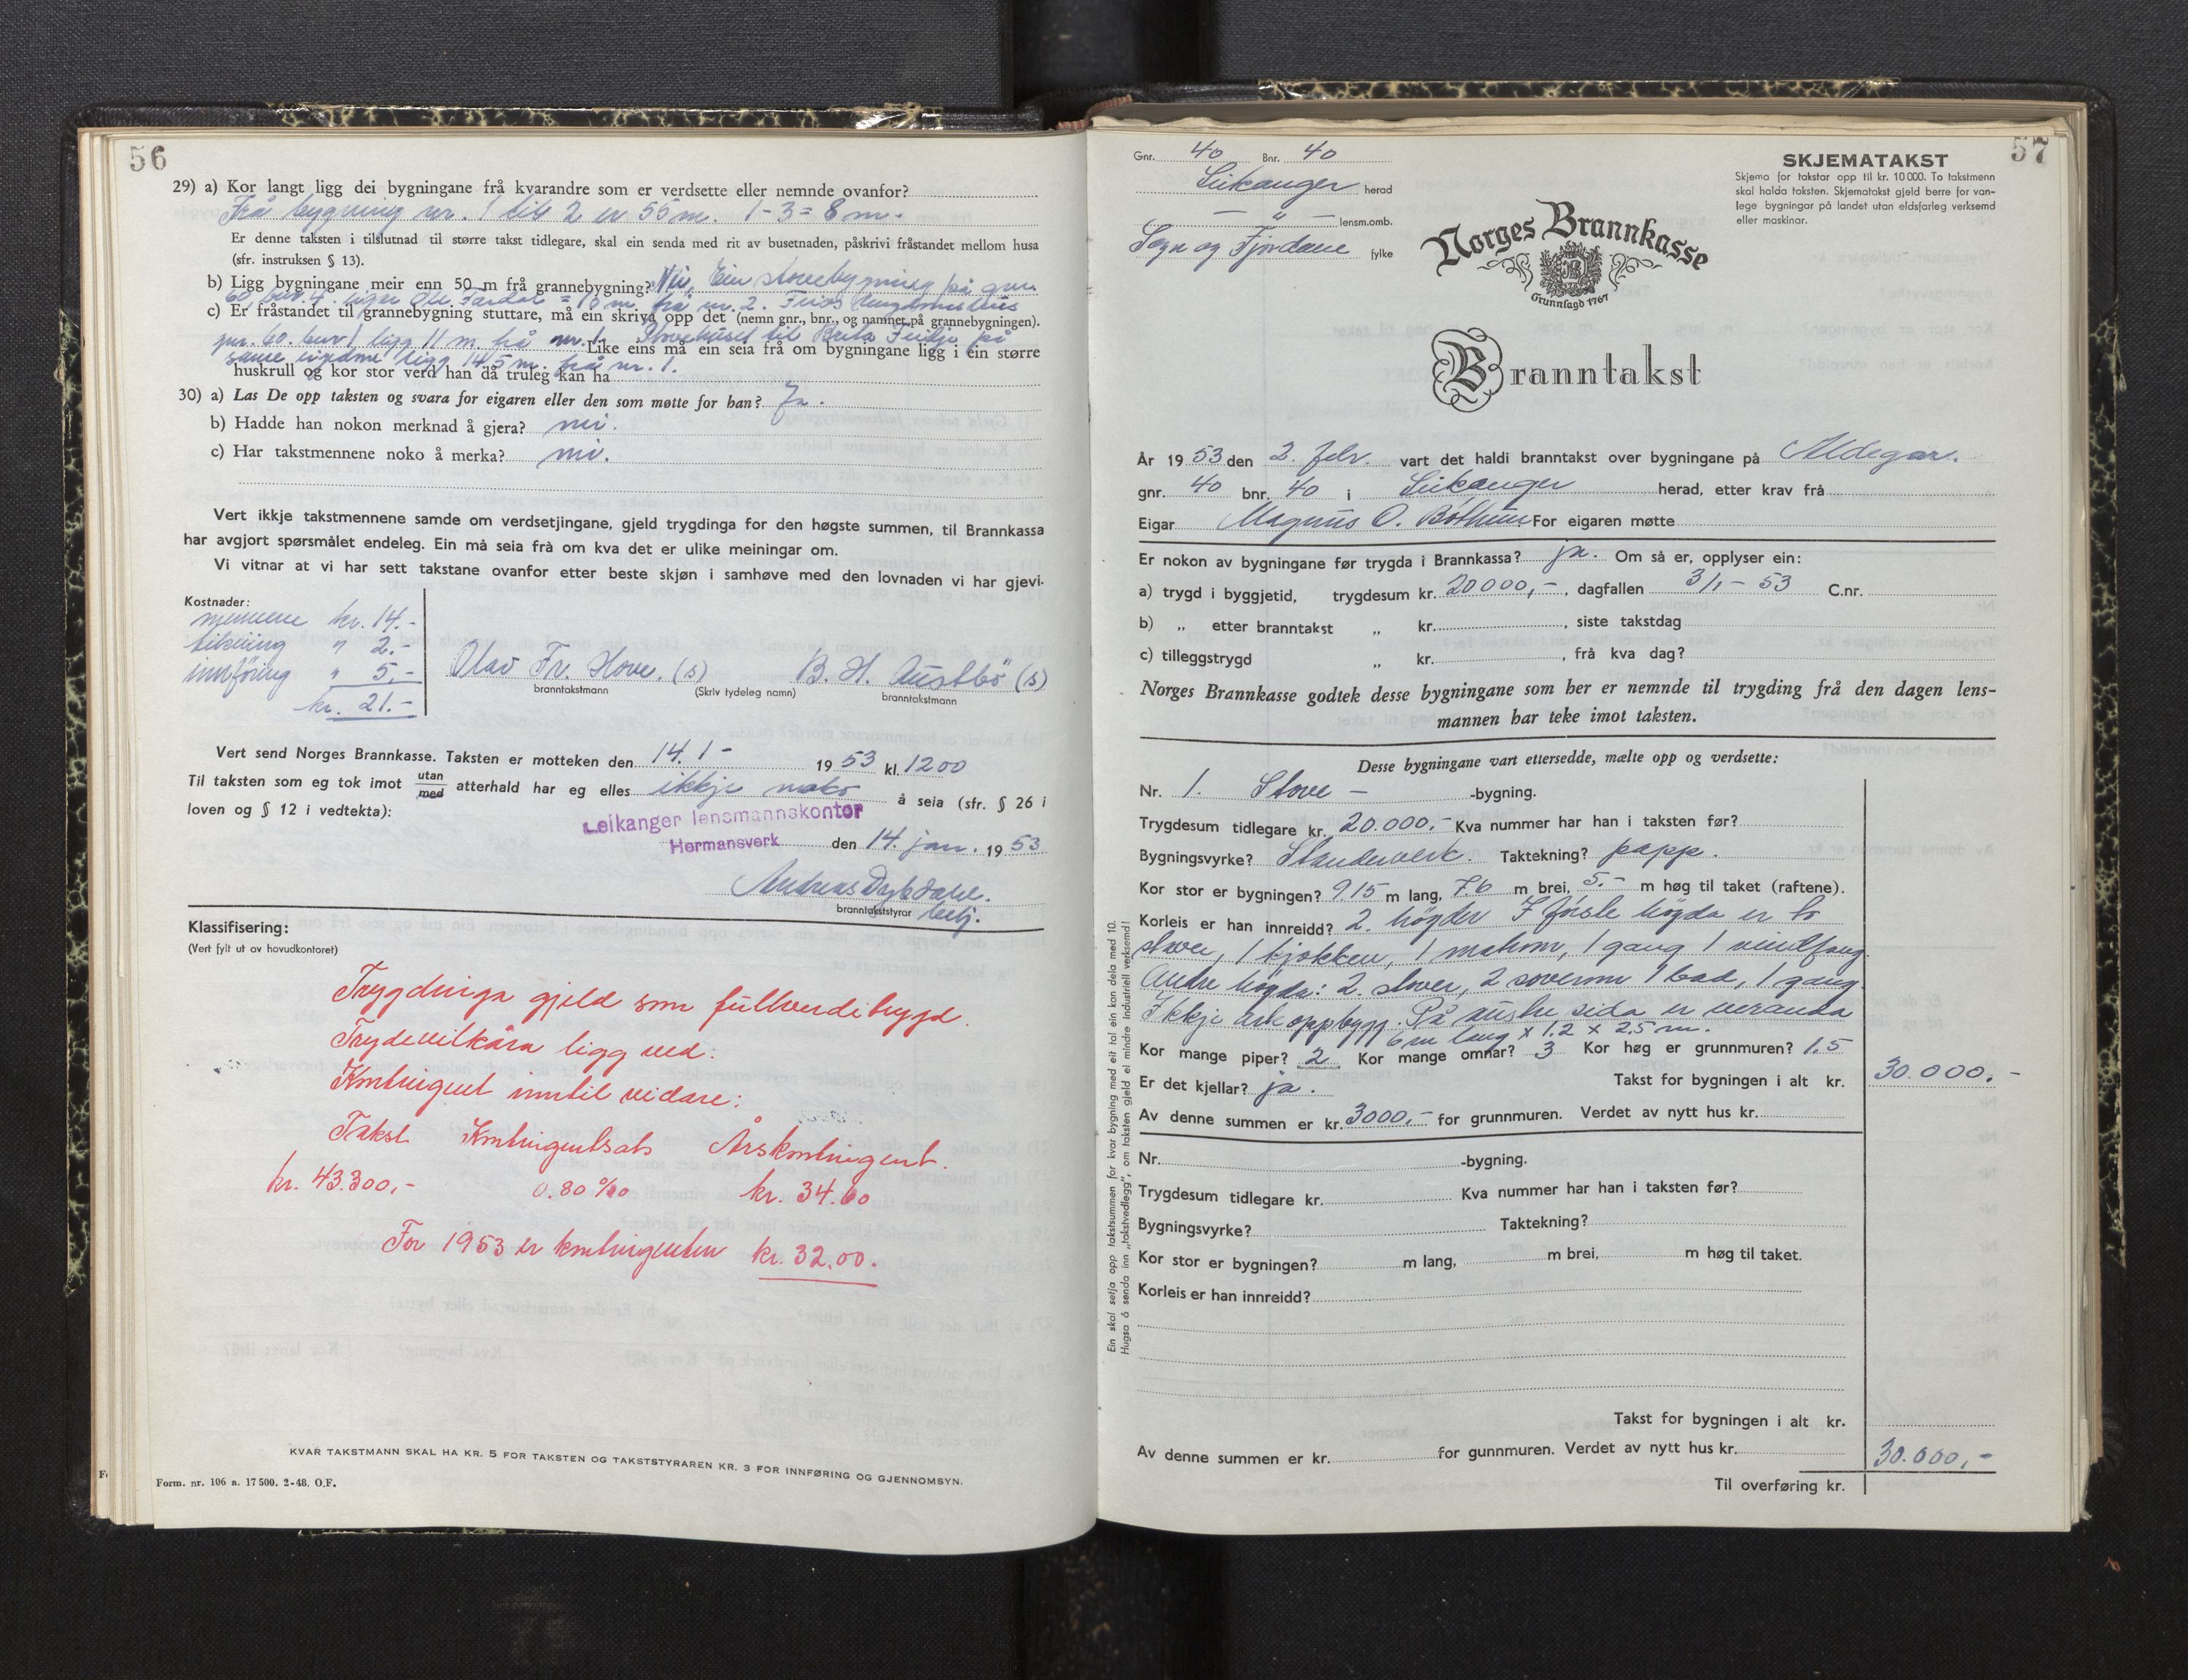 56
29) a) Kor langt ligg dei bygningane frå kvarandre som er verdsette eller nemnde ovanfor?
Frå bygning nr. 1 til 2 er 55 m. 1-3 = 8 m.
Er denne taksten i tilslutnad til større takst tidlegare, skal ein senda med rit av busetnaden, påskrivi fråstandet mellom husa
(sfr. instruksen § 13).
b) Ligg bygningane meir enn 50 m frå grannebygning? Nei, Ein stovebygning på gnr.
60, bnr. 4. eigar Ole Fardal = 16 m. frå nr. 2. Ungdomshus
c) Er fråstandet til grannebygning stuttare, må ein skriva opp det (nemn gnr., bnr., og namnet på grannebygningen).
gnr. 60. bnr 1 ligg 11 m. frå nr. 1. Stovehuset til Brita Feidje på
Like eins må ein seia frå om bygningane ligg i ein større
same eigedom ligg 14.5 m. frå nr. 1.
huskrull og kor stor verd han då truleg kan ha
30) a) Las De opp taksten og svara for eigaren eller den som møtte for han? Ja.
b) Hadde han nokon merknad å gjera? nei.
c) Har takstmennene noko å merka? nei.
Vert ikkje takstmennene samde om verdsetjingane, gjeld trygdinga for den høgste summen, til Brannkassa
har avgjort spørsmålet endeleg. Ein må seia frå om kva det er ulike meiningar om.
Vi vitnar at vi har sett takstane ovanfor etter beste skjøn i samhøve med den lovnaden vi har gjevi.
Kostnader:
mennene kr. 14.-
" 2.-
innföring " 5.-
kr. 21.-
Olav Fr. Hove. (s) B. H. Austbö (s)
branntakstmann (Skriv tydeleg namn) branntakstmann
Vert send Norges Brannkasse. Taksten er motteken den 14. 1 - 1953 kl. 1200
Til taksten som eg tok imot utan/med atterhald har eg elles ikkje noko å seia (sfr. § 26 i
loven og § 12 i vedtekta):
Leikanger lensmannskontor
Hermansverk den 14. jan. 1953
Andreas Dybdahl.
branntakststyrar
Klassifisering:
(Vert fylt ut av hovudkontoret)
Trygdinga gjeld som fullverditrygd.
Trygdevilkåra ligg ved.
Kontingent inntil vidare:
Takst Kontingentsats Årskontingent.
kr. 43.300,- 0.80 ‰ kr. 34.60
For 1953 er kontingenten kr. 32.00.
KVAR TAKSTMANN SKAL HA KR. 5 FOR TAKSTEN OG TAKSTSTYRAREN KR. 3 FOR INNFØRING OG GJENNOMSYN.
Form. nr. 106 a. 17500. 2-48. O.F.
57
Gnr. 40 Bnr. 40
Leikanger herad
— " — lensm.omb.
Sogn og Fjordane fylke
SKJEMATAKST
Skjema for takstar opp til kr. 10 000. To takstmenn
skal halda taksten. Skjematakst gjeld berre for van-
lege bygningar på landet utan eldsfarleg verksemd
eller maskinar.
Norges Brannkasse
Grunnlagd 1767
Branntakst
År 1953 den 2. febr. vart det haldi branntakst over bygningane på Aldegar.
gnr. 40 bnr. 40 i Leikanger herad, etter krav frå
Eigar Magnus O. Bothun For eigaren møtte
Er nokon av bygningane før trygda i Brannkassa? ja. Om så er, opplyser ein:
a) trygd i byggjetid, trygdesum kr. 20000,-, dagfallen 3/1 - 53 C.nr.
b) „ etter branntakst „ kr. , siste takstdag
c) tilleggstrygd „ kr. , frå kva dag?
Norges Brannkasse godtek desse bygningane som her er nemnde til trygding frå den dagen lens-
mannen har teke imot taksten.
Desse bygningane vart ettersedde, mælte opp og verdsette:
Nr. 1. Stove - -bygning.
Trygdesum tidlegare kr. 20.000,- Kva nummer har han i taksten før?
Bygningsvyrke? Standerverk. Taktekning? papp.
Kor stor er bygningen? 9 15 m lang, 7.6 m brei, 5.- m høg til taket (raftene).
Korleis er han innreidd? 2. högder I fyrste högda er to
stover, 1 kjøkken, 1 matrom, 1 gang 1 vindfang.
Andre högda: 2. stover, 2 soverom 1 bad, 1 gang.
Ikkje ark oppbygg. På austre sida er veranda
6 m lang x 1.2 x 2.5 m.
Kor mange piper? 2 Kor mange omnar? 3 Kor høg er grunnmuren? 1.5
Er det kjellar? ja. Takst for bygningen i alt kr. 30.000.-
Av denne summen er kr. 3000,- for grunnmuren. Verdet av nytt hus kr.
Nr. -bygning.
Trygdesum tidlegare kr. Kva nummer har han i taksten før?
Bygningsvyrke? Taktekning?
Kor stor er bygningen? m lang, m brei, m høg til taket.
Korleis er han innreidd?
Takst for bygningen i alt kr.
Av denne summen er kr. for gunnmuren. Verdet av nytt hus kr.
30.000,-
Til overføring kr.
Ein skal setja opp takstsummen for kvar bygning med eit tal ein kan dela med 10.
Hugsa å senda inn „takstvedlegg", om taksten gjeld ei mindre industriell verksemd!